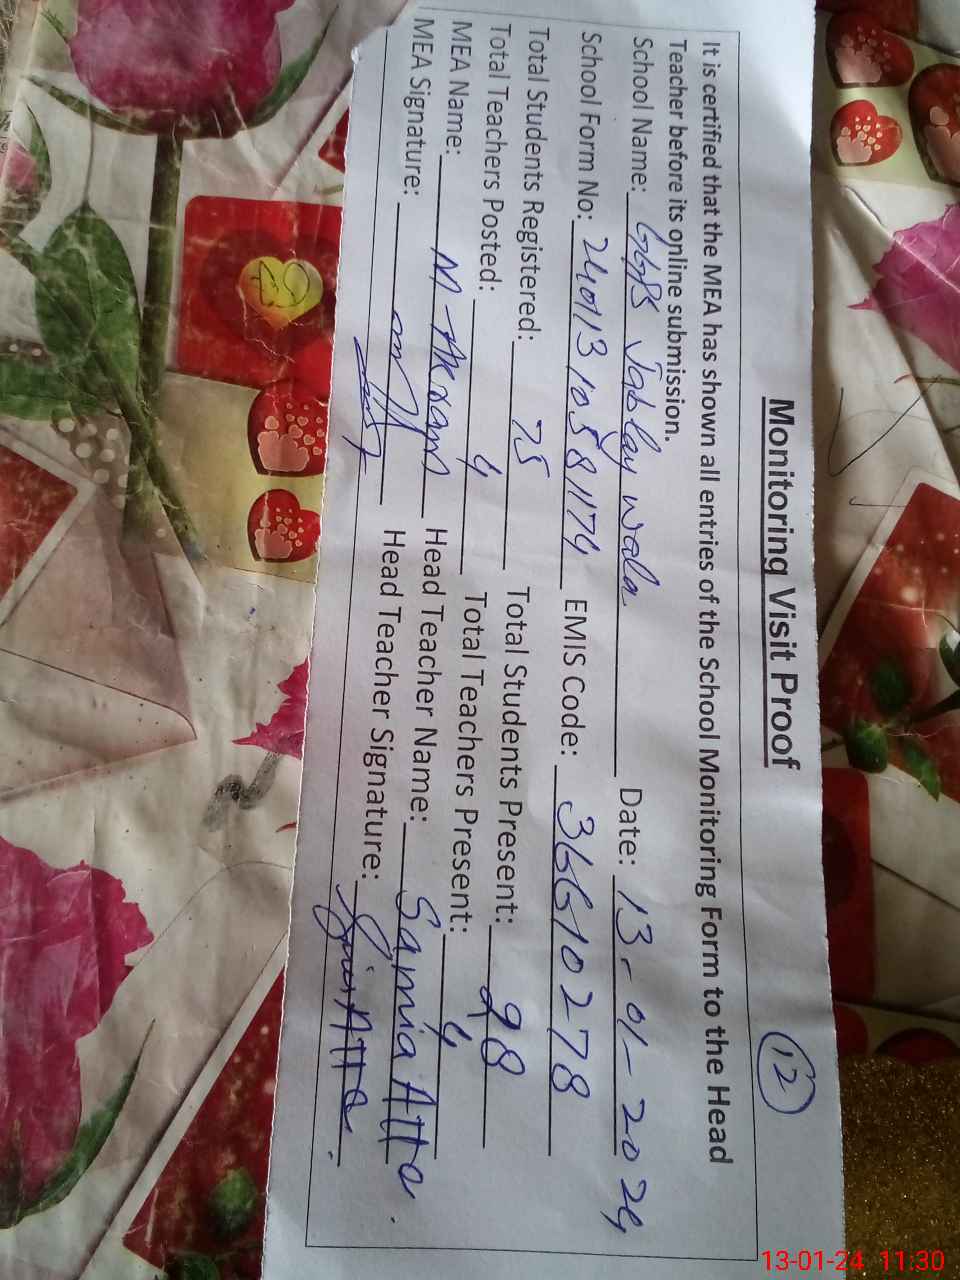 Monitoring Visit Proof
12
It is certified that the MEA has shown all entries of the School Monitoring Form to the Head
Teacher before its online submission.
School Name: GGPS Jabley wala Date: 13-01-2024
School Form No: 24011310581174 EMIS Code: 36610278
Total Students Registered: 75 Total Students Present: 28
Total Teachers Posted: 4 Total Teachers Present: 4
MEA Name: M-Akram Head Teacher Name: Samia Atta.
MEA Signature: Head Teacher Signature:
13-01-24 11:30